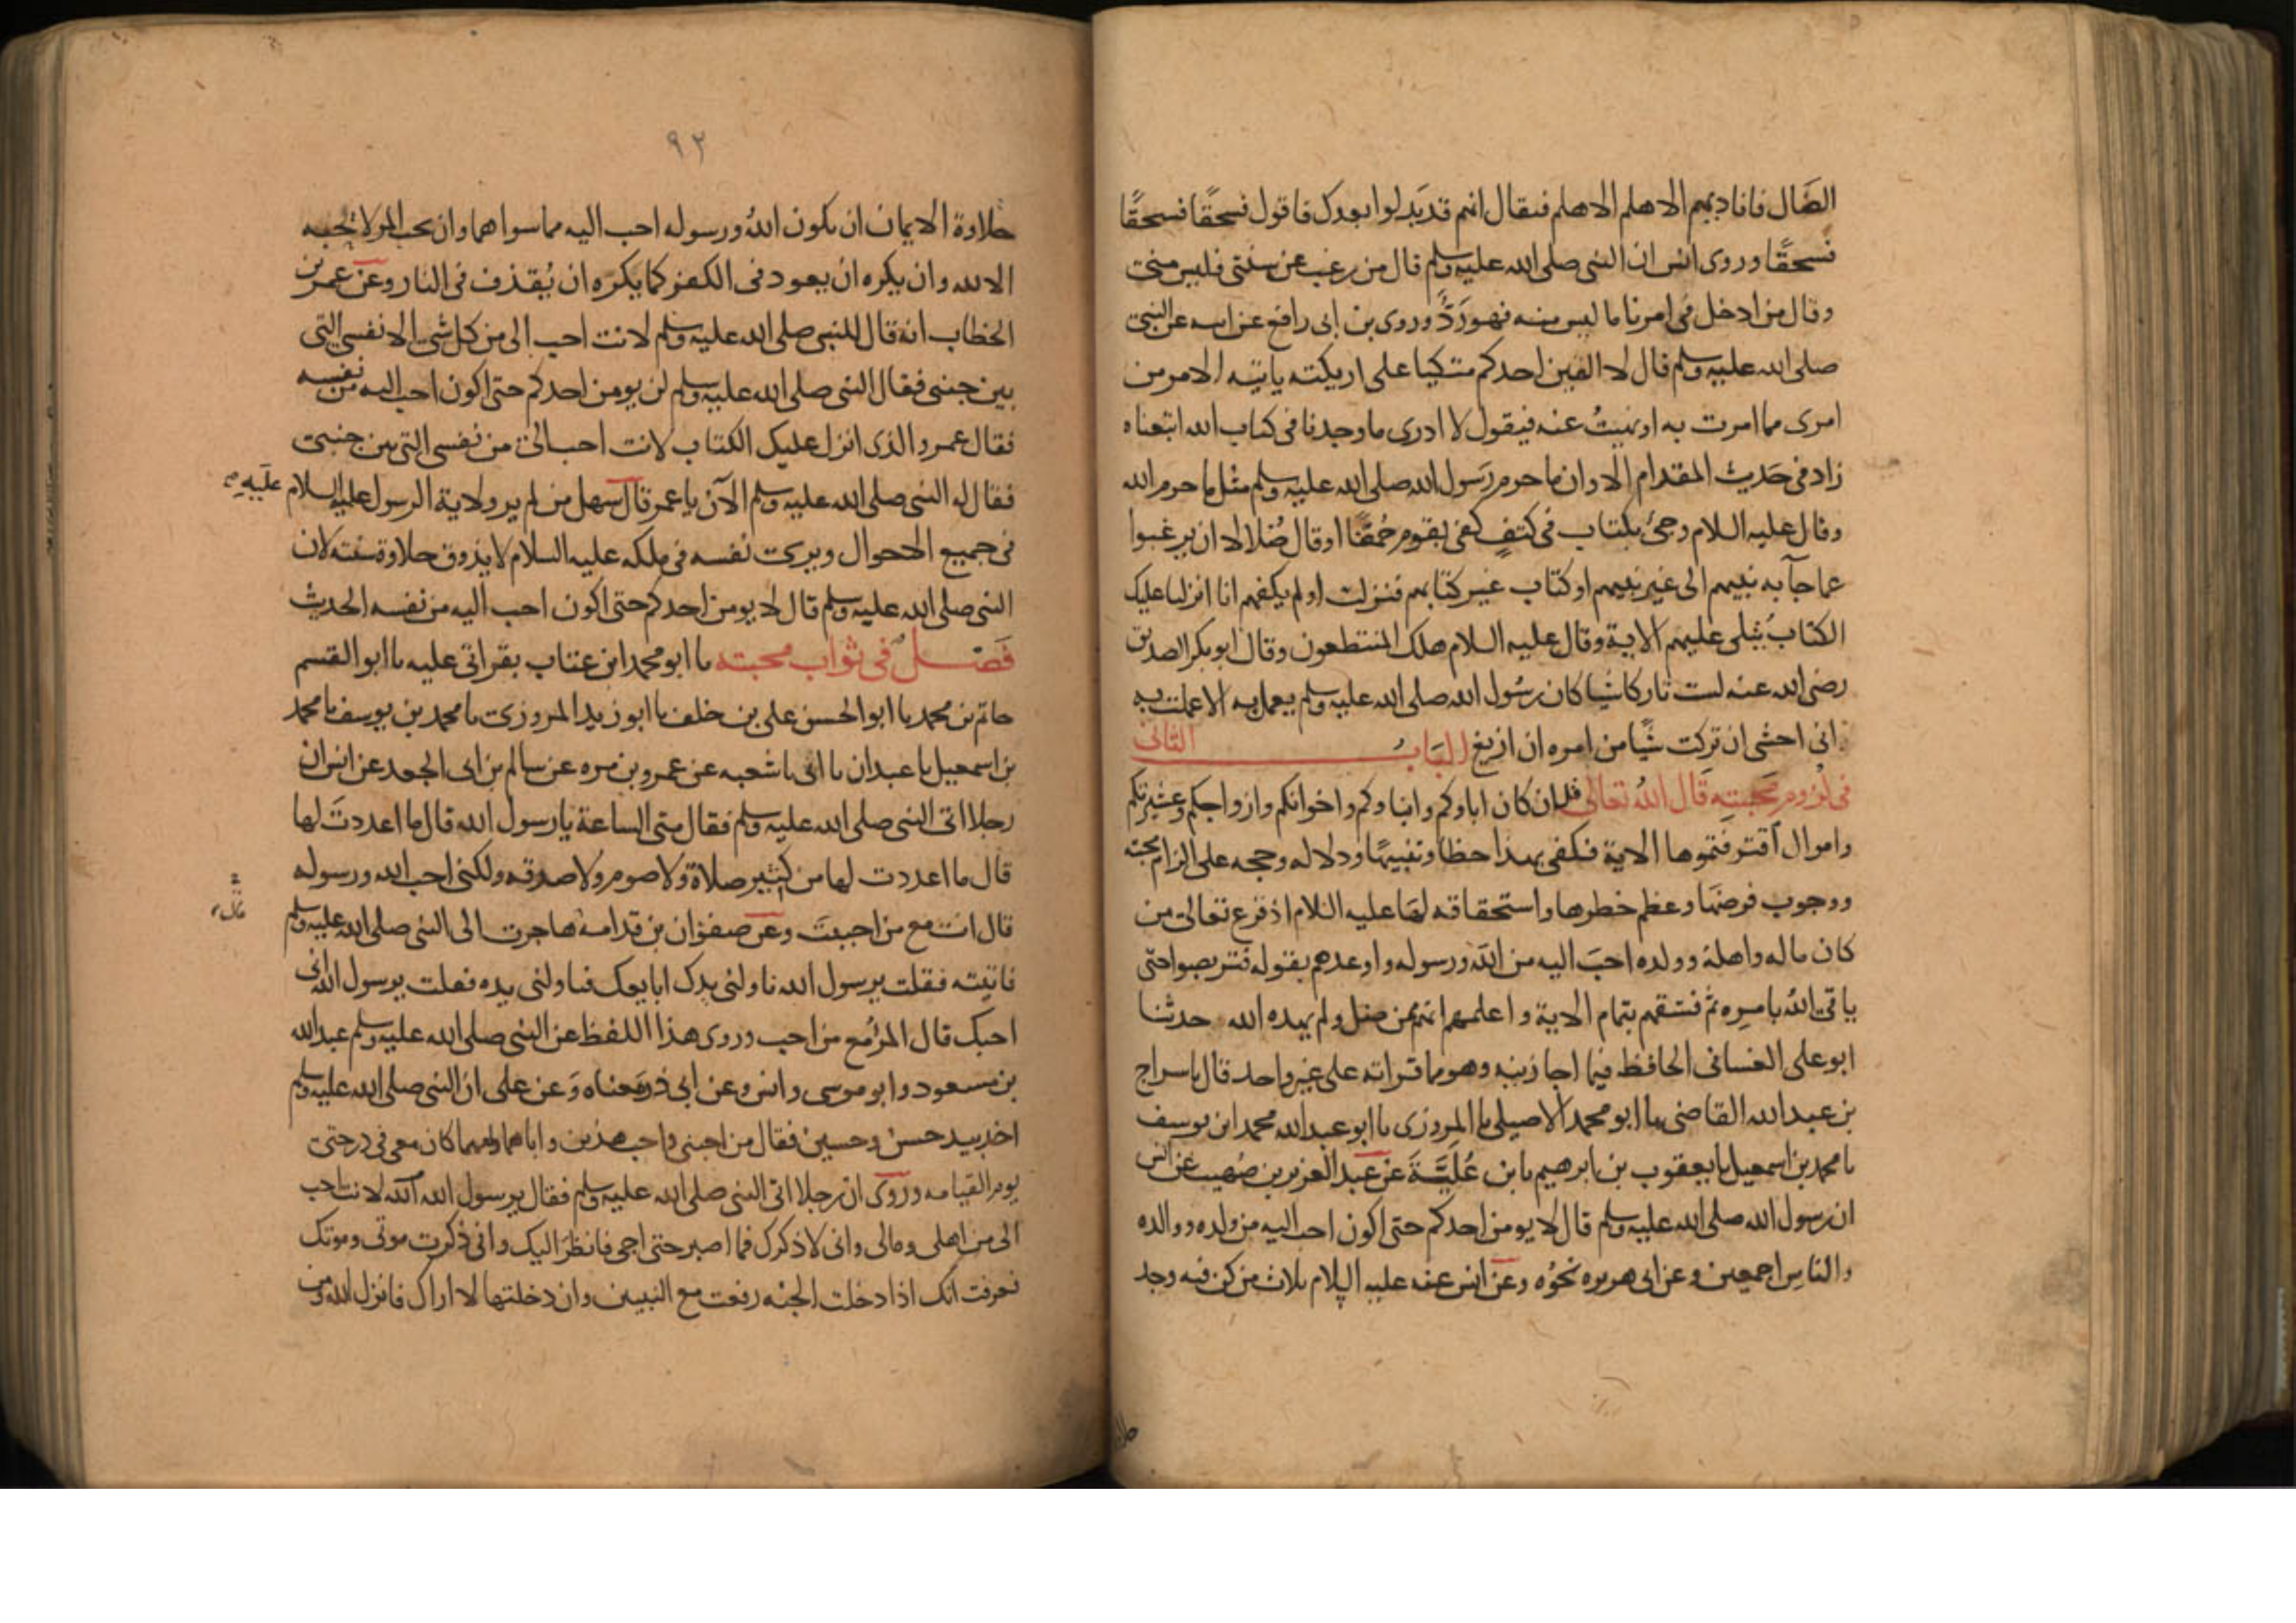 الضَال فاناديهم الا هلم الا هلم فيقال انهم قد بَدلوا بعدك فاقول فسحقًا فسحقًا
فسحقًا وروى انس ان النبى صلى الله عليه وسلم قال من رغب عن سنتى فليس منى
وقال من ادخل فى امرنا ما ليس منه فهو رَدٌّ وروى بن ابى رافع عن ابيه عن النبى
صلى الله عليه وسلم قال لا الفين احدكم متكيا على اريكته ياتيه الامر من
امرى مما امرت به او نهيتُ عنه فيقول لا ادرى ما وجدنا فى كتاب الله اتبعناه
زاد فى حَديث المقدام الا وان ما حرم رَسول الله صلى الله عليه وسلم مثل ما حرم الله
وقال عليه السلام وجئ بكتاب فى كتفٍ كفى بقوم حُمقًا او قال ضُلالا ان يرغبوا
عما جآ به نبيهم الى غير نبيهم او كتاب غير كتابهم فنزلت اولم يكفهم انا انزلنا عليك
الكتابُ يتلى عليهم الاية وقال عليه السلام هلك المتنطعون وقال ابو بكر الصديق
رضى الله عنه لست تاركا شيا كان رسُول الله صلى الله عليه وسلم يعمل به الا عملت به
انى اخشى ان تركت شيًا من امره ان ازيغ البَابُ الثانى
فى لزوم محبته قال اللهُ تعالى قل ان كان اباوكم وابناوكم واخوانكم وازواجكم وعشيرتكم
واموال اقترفتموها الاية فكفى بهذا حظا وتنبيهًا ودلاله وحجه على الزام محبته
ووجوب فرضهَا وعظم خطرها واستحقاقه لهَا عليه السلام اذ قرع تعالى من
كان ماله واهلهُ وولده احبَ اليه من اللهَ ورسوله واوعدهم بقوله فتربصوا حتى
ياتى اللهُ بامره ثم فسقهم بتمام الاية واعلمهم انهم ممن ضل ولم يهده الله حدثنا
ابو على الغسانى الحافظ فيما اجازنيه وهو مما قراته على غير واحد قال نا سراج
بن عبد الله القاضى نا ابو محمد الاصيلى نا المروزى نا ابو عبد الله محمد ابن يوسف
نا محمد بن اسمعيل نا يعقوب بن ابرهيم نا بن عُليَّةَ عن عبد العزيز بن صُهيب عن انس
ان رسول الله صلى الله عليه وسلم قال لا يومن احدكم حتى اكون احب اليه من ولده ووالده
والناسِ اجمعين وعن ابى هريره نحوُه وعن انس عنه عليه السلام ثلاث من كن فيه وجد
٩٢
حلاوة الايمان ان يكون اللهُ ورسوله احب اليه مما سواهما وان يحب المرْ لا يحبه
الا لله وان يكره ان يعود فى الكفر كما يكره ان يُقذف فى النار وعن عمر بن
الخطاب انه قال للنبى صلى الله عليه وسلم لانت احب الى من كل شى الا نفسى التى
بين جنبى فقال النبى صلى الله عليه وسلم لن يومن احدكم حتى اكون احب اليه من نفسه
فقال عمر والذى انزل عليك الكتاب لانت احب الى من نفسى التى بين جنبى
فقال له النبى صلى الله عليه وسلم الآن يا عمر قال سهل من لم ير ولاية الرسول عليه السلام عليه
فى جميع الاحوال ويرى نفسه فى ملكه عليه السلام لا يذوق حلاوة سنته لان
النبى صلى الله عليه وسلم قال لا يومن احدكم حتى اكون احب اليه من نفسه الحديث
فَصْل فى ثواب محبته نا ابو محمد ابن عتاب بقراتى عليه نا ابو القسم
حاتم بن محمد نا ابو الحسن على بن خلف نا ابو زيد المروزى نا محمد بن يوسف نا محمد
بن اسمعيل نا عبدان نا ابى نا شعبه عن عمرو بن مره عن سالم بن ابى الجعد عن انس ان
رجلا اتى النبى صلى الله عليه وسلم فقال متى الساعة يا رسول الله قال ما اعددتَ لها
قال ما اعددت لها من كثير صلاة ولا صوم ولا صدقه ولكنى احب الله ورسوله
قال انت مع من احببتَ وعن صفوان بن قدامه هاجرت الى النبى صلى الله عليه وسلم
فاتيته فقلت يرسول الله ناولنى يدك ابايعك فناولنى يده فقلت يرسول الله انى
احبك قال المرُ مع من احب وروى هذا اللفظ عن النبى صلى الله عليه وسلم عبد الله
بن مسعود وابو موسى وانس وعن ابى ذر بمعناه وَعن على ان النبى صلى الله عليه وسلم
اخذ بيد حسن وحسين فقال من احبنى واحب هذين واباهما وامهما كان معى فى درجتى
يوم القيامه وروى ان رجلا اتى النبى صلى الله عليه وسلم فقال يرسول الله لانت احب
الى من اهلى ومالى وانى لاذكرك فما اصبر حتى اجى فانظرَ اليك وانى ذكرت موتى وموتك
فعرفت انك اذا دخلت الجنه رفعت مع النبيين وان دخلتها لا اراك فانزل الله ومن